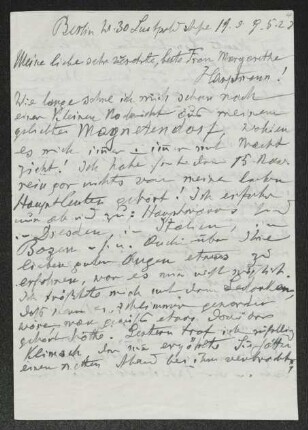 Berlin W. 30 Luitpold Str 19. d 9.5.27
Meine liebe sehr verehrte, beste Frau Margarethe
Hauptmann!
Wie lange sehne ich mich schon nach
einer kleinen Nachricht aus meinem
geliebten Magnetendorf, wohin
es mich immer u. immer mit Macht
zieht! Ich habe seit dem 15 Nov
rein gar nichts von meinen lieben
Hauptleuten gehört! Ich erfuhr
nur ab und zu: Hauptmanns sind
in Dresden, in Italien, in
Bozen
lieben guten Augen etwas zu
erfahren, war es mir nicht möglich.
Ich tröstete mich mit dem Gedanken,
dass wenn es schlimmer geworden
wäre, man gewiss etwas darüber
gehört hätte. Gestern traf ich zufällig
Klimsch der mir erzählte Sie hätten
einen netten Abend bei ihm verbracht